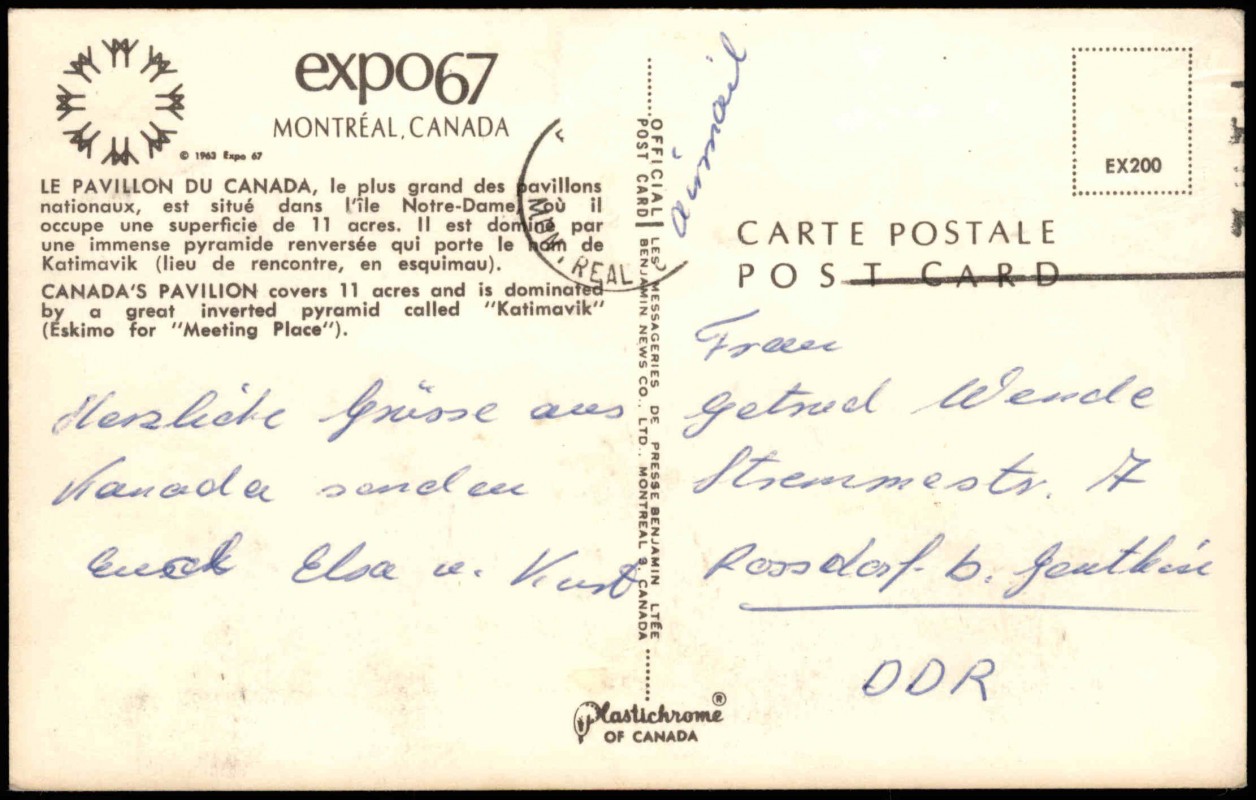 expo67
MONTRÉAL, CANADA
© 1963 Expo 67
LE PAVILLON DU CANADA, le plus grand des pavillons
nationaux, est situé dans l'île Notre-Dame, où il
occupe une superficie de 11 acres. Il est dominé par
une immense pyramide renversée qui porte le nom de
Katimavik (lieu de rencontre, en esquimau).
CANADA'S PAVILION covers 11 acres and is dominated
by a great inverted pyramid called "Katimavik"
(Eskimo for "Meeting Place").
Herzliche Grüsse aus
Kanada senden
Euch Elsa u. Kurt
MONTREAL
OFFICIAL POST CARD
LES MESSAGERIES DE PRESSE BENJAMIN LTÉE
BENJAMIN NEWS CO., LTD., MONTREAL 9, CANADA
Plastichrome ®
OF CANADA
airmail
EX200
CARTE POSTALE
POST CARD
Frau
Getrud Wende
Stremmestr. 7
Rossdorf b. Genthin
DDR